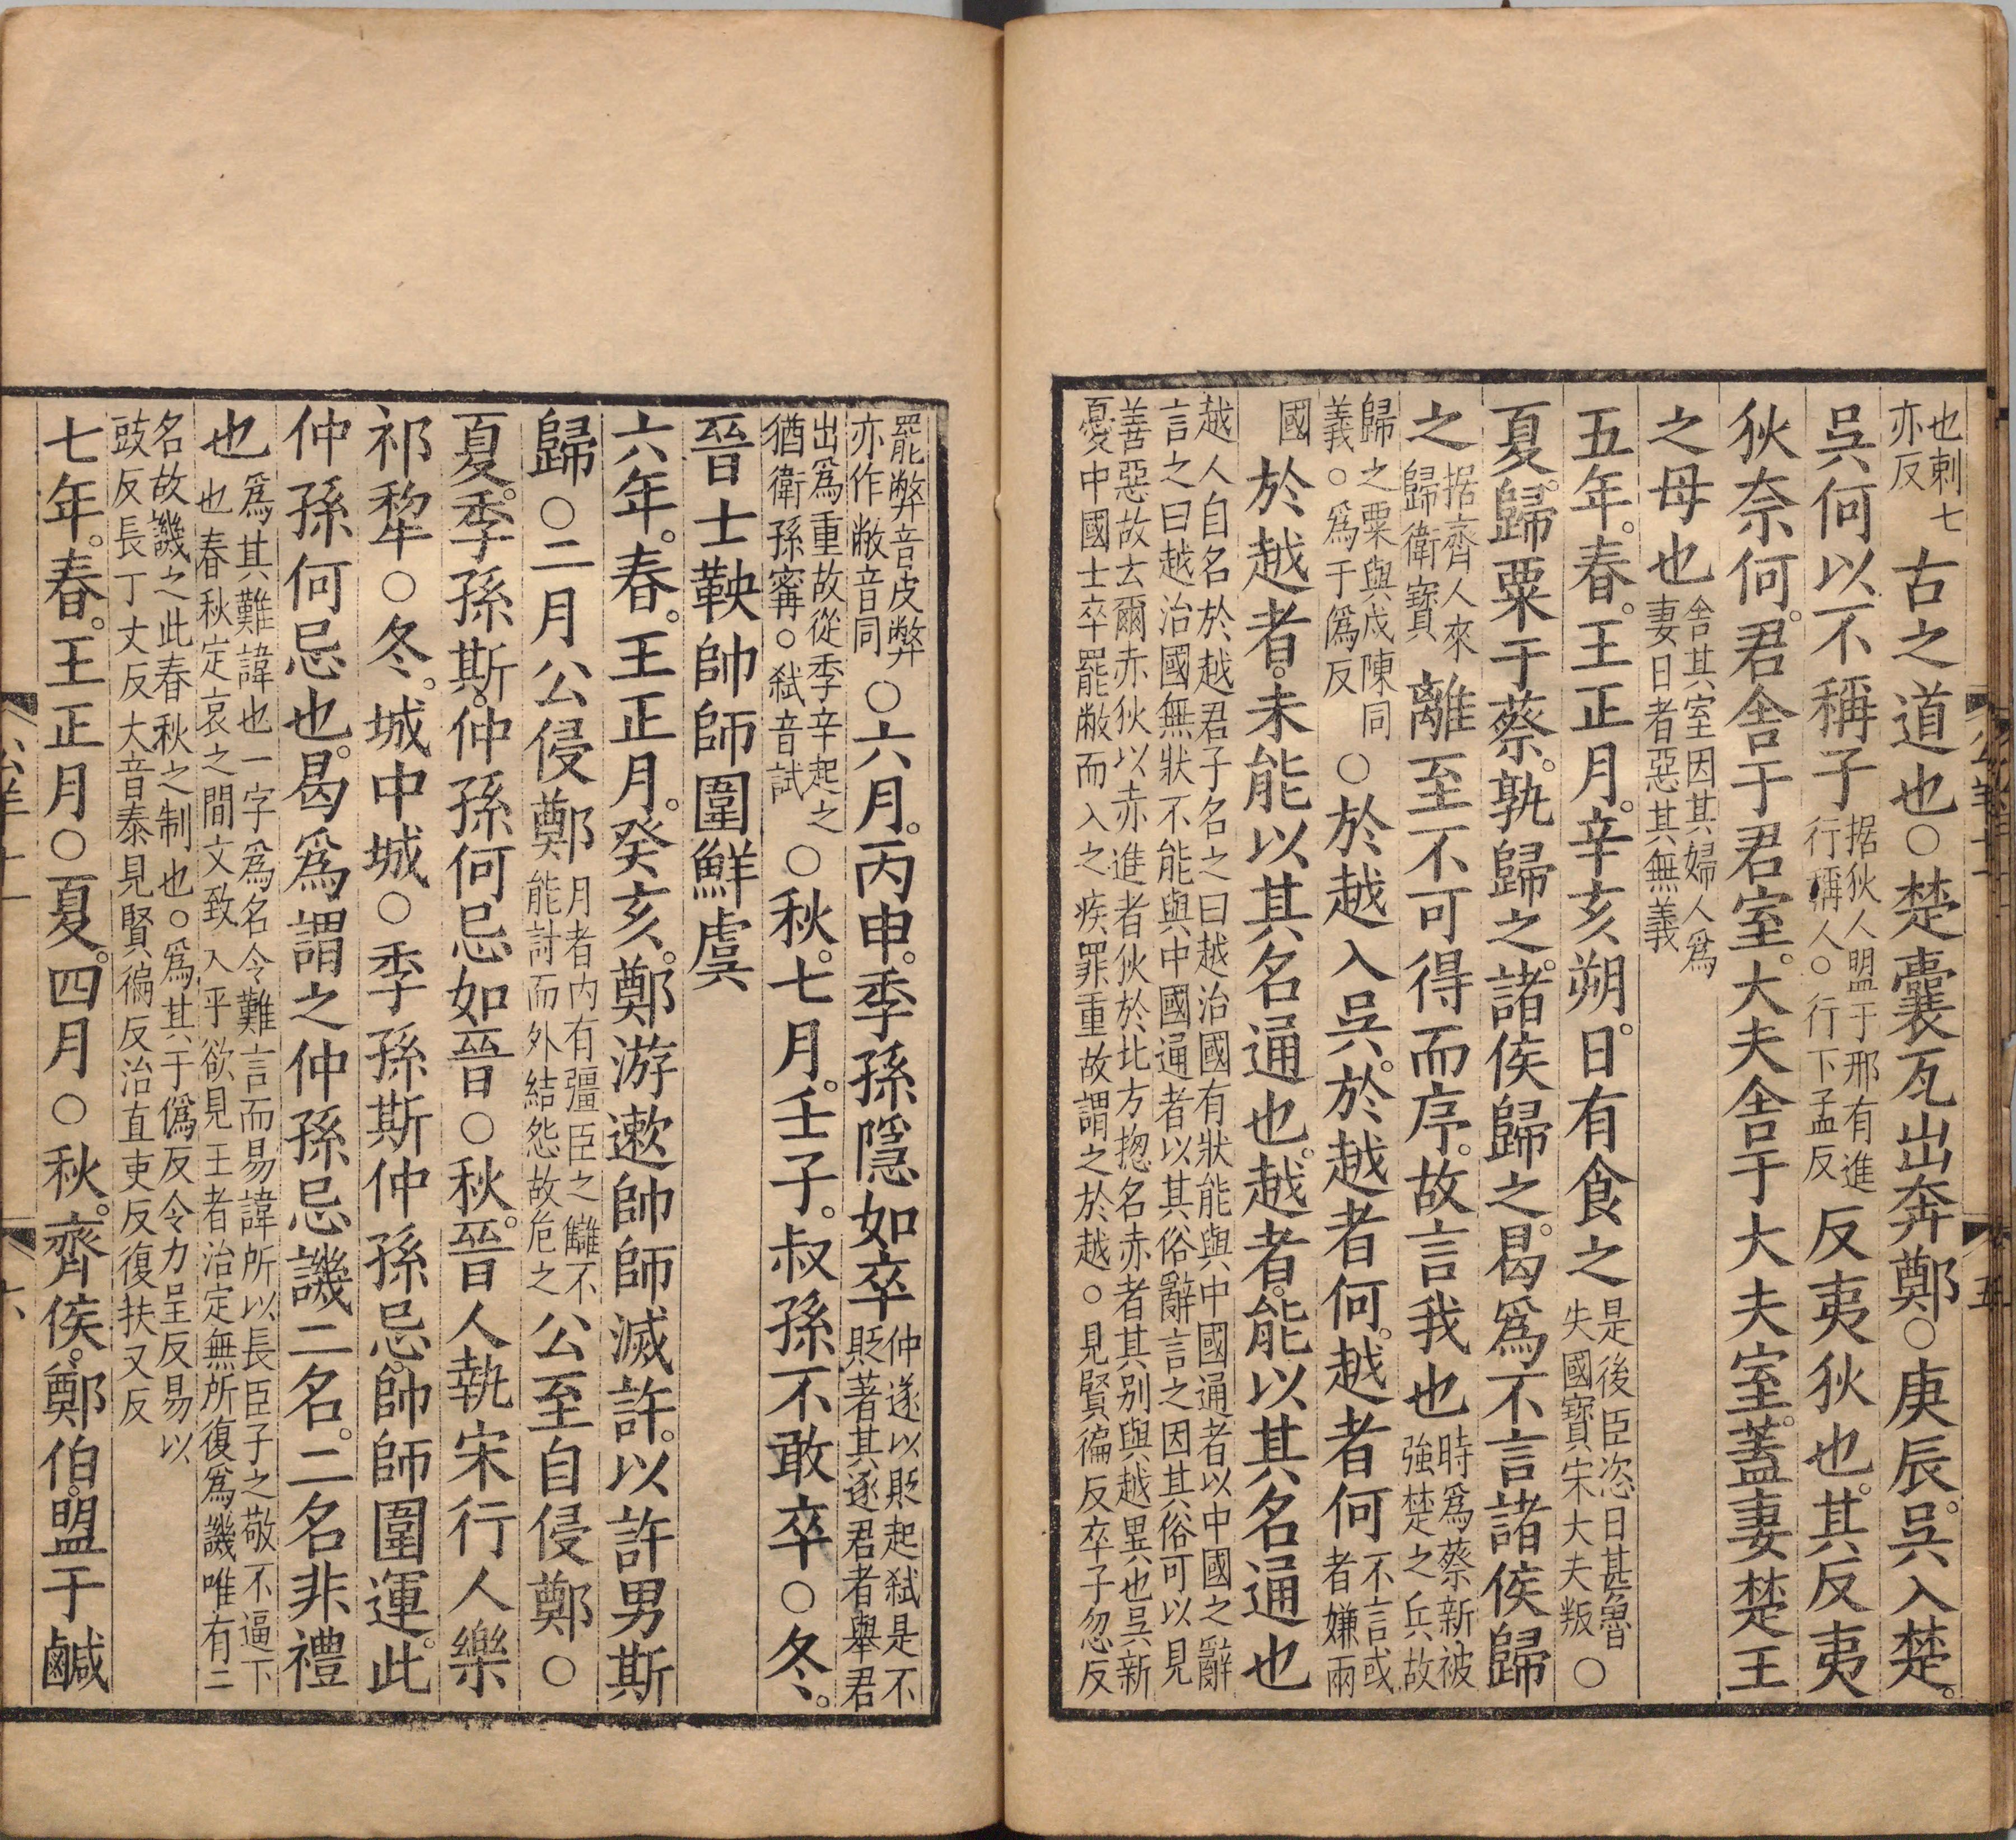 也剌七亦反古之道也○楚囊瓦出奔鄭○庚辰。吳入楚。
吳何以不稱子据狄人盟于邢有進行稱人○行下孟反反夷狄也。其反夷
狄奈何。君舍于君室。大夫舍于大夫室。蓋妻楚王
之母也舍其室因其婦人爲妻日者惡其無義
五年。春。王正月。辛亥朔。日有食之是後臣恣日甚魯失國寶宋大夫叛○
夏。歸粟于蔡。孰歸之。諸侯歸之。曷爲不言諸侯歸
之据齊人來歸衛寶離至不可得而序。故言我也時爲蔡新被強楚之兵故
歸之粟與戍陳同義○爲于僞反○於越入吳。於越者何。越者何不言或者嫌兩
國於越者。未能以其名通也。越者。能以其名通也
越人自名於越君子名之曰越治國有狀能與中國通者以中國之辭
言之曰越治國無狀不能與中國通者以其俗辭言之因其俗可以見
善惡故云爾赤狄以赤進者狄於北方揔名赤者其别與越異也吳新
憂中國士卒罷敝而入之疾罪重故謂之於越○見賢徧反卒子忽反
罷弊音皮弊亦作敝音同○六月。丙申。季孫隱如卒仲遂以貶起弑是不貶著其逐君者舉君
出爲重故從季辛起之猶衛孫寗○弑音試○秋。七月。壬子。叔孫不敢卒○冬。
晉士鞅帥師圍鮮虞
六年。春。王正月。癸亥。鄭游遬帥師滅許。以許男斯
歸○二月公侵鄭月者内有彊臣之讎不能討而外結怨故危之公至自侵鄭○
夏。季孫斯。仲孫何忌如晉○秋。晉人執宋行人樂
祁犂○冬。城中城○季孫斯仲孫忌。帥師圍運。此
仲孫何忌也。曷爲謂之仲孫忌譏二名。二名非禮
也爲其難諱也一字爲名令難言而易諱所以長臣子之敬不逼下也春秋定哀之間文致入乎欲見王者治定無所復爲譏唯有二
名故譏之此春秋之制也○爲其于僞反令力呈反易以豉反長丁丈反大音泰見賢徧反治直吏反復扶又反
七年。春。王正月○夏。四月○秋。齊侯。鄭伯。盟于鹹